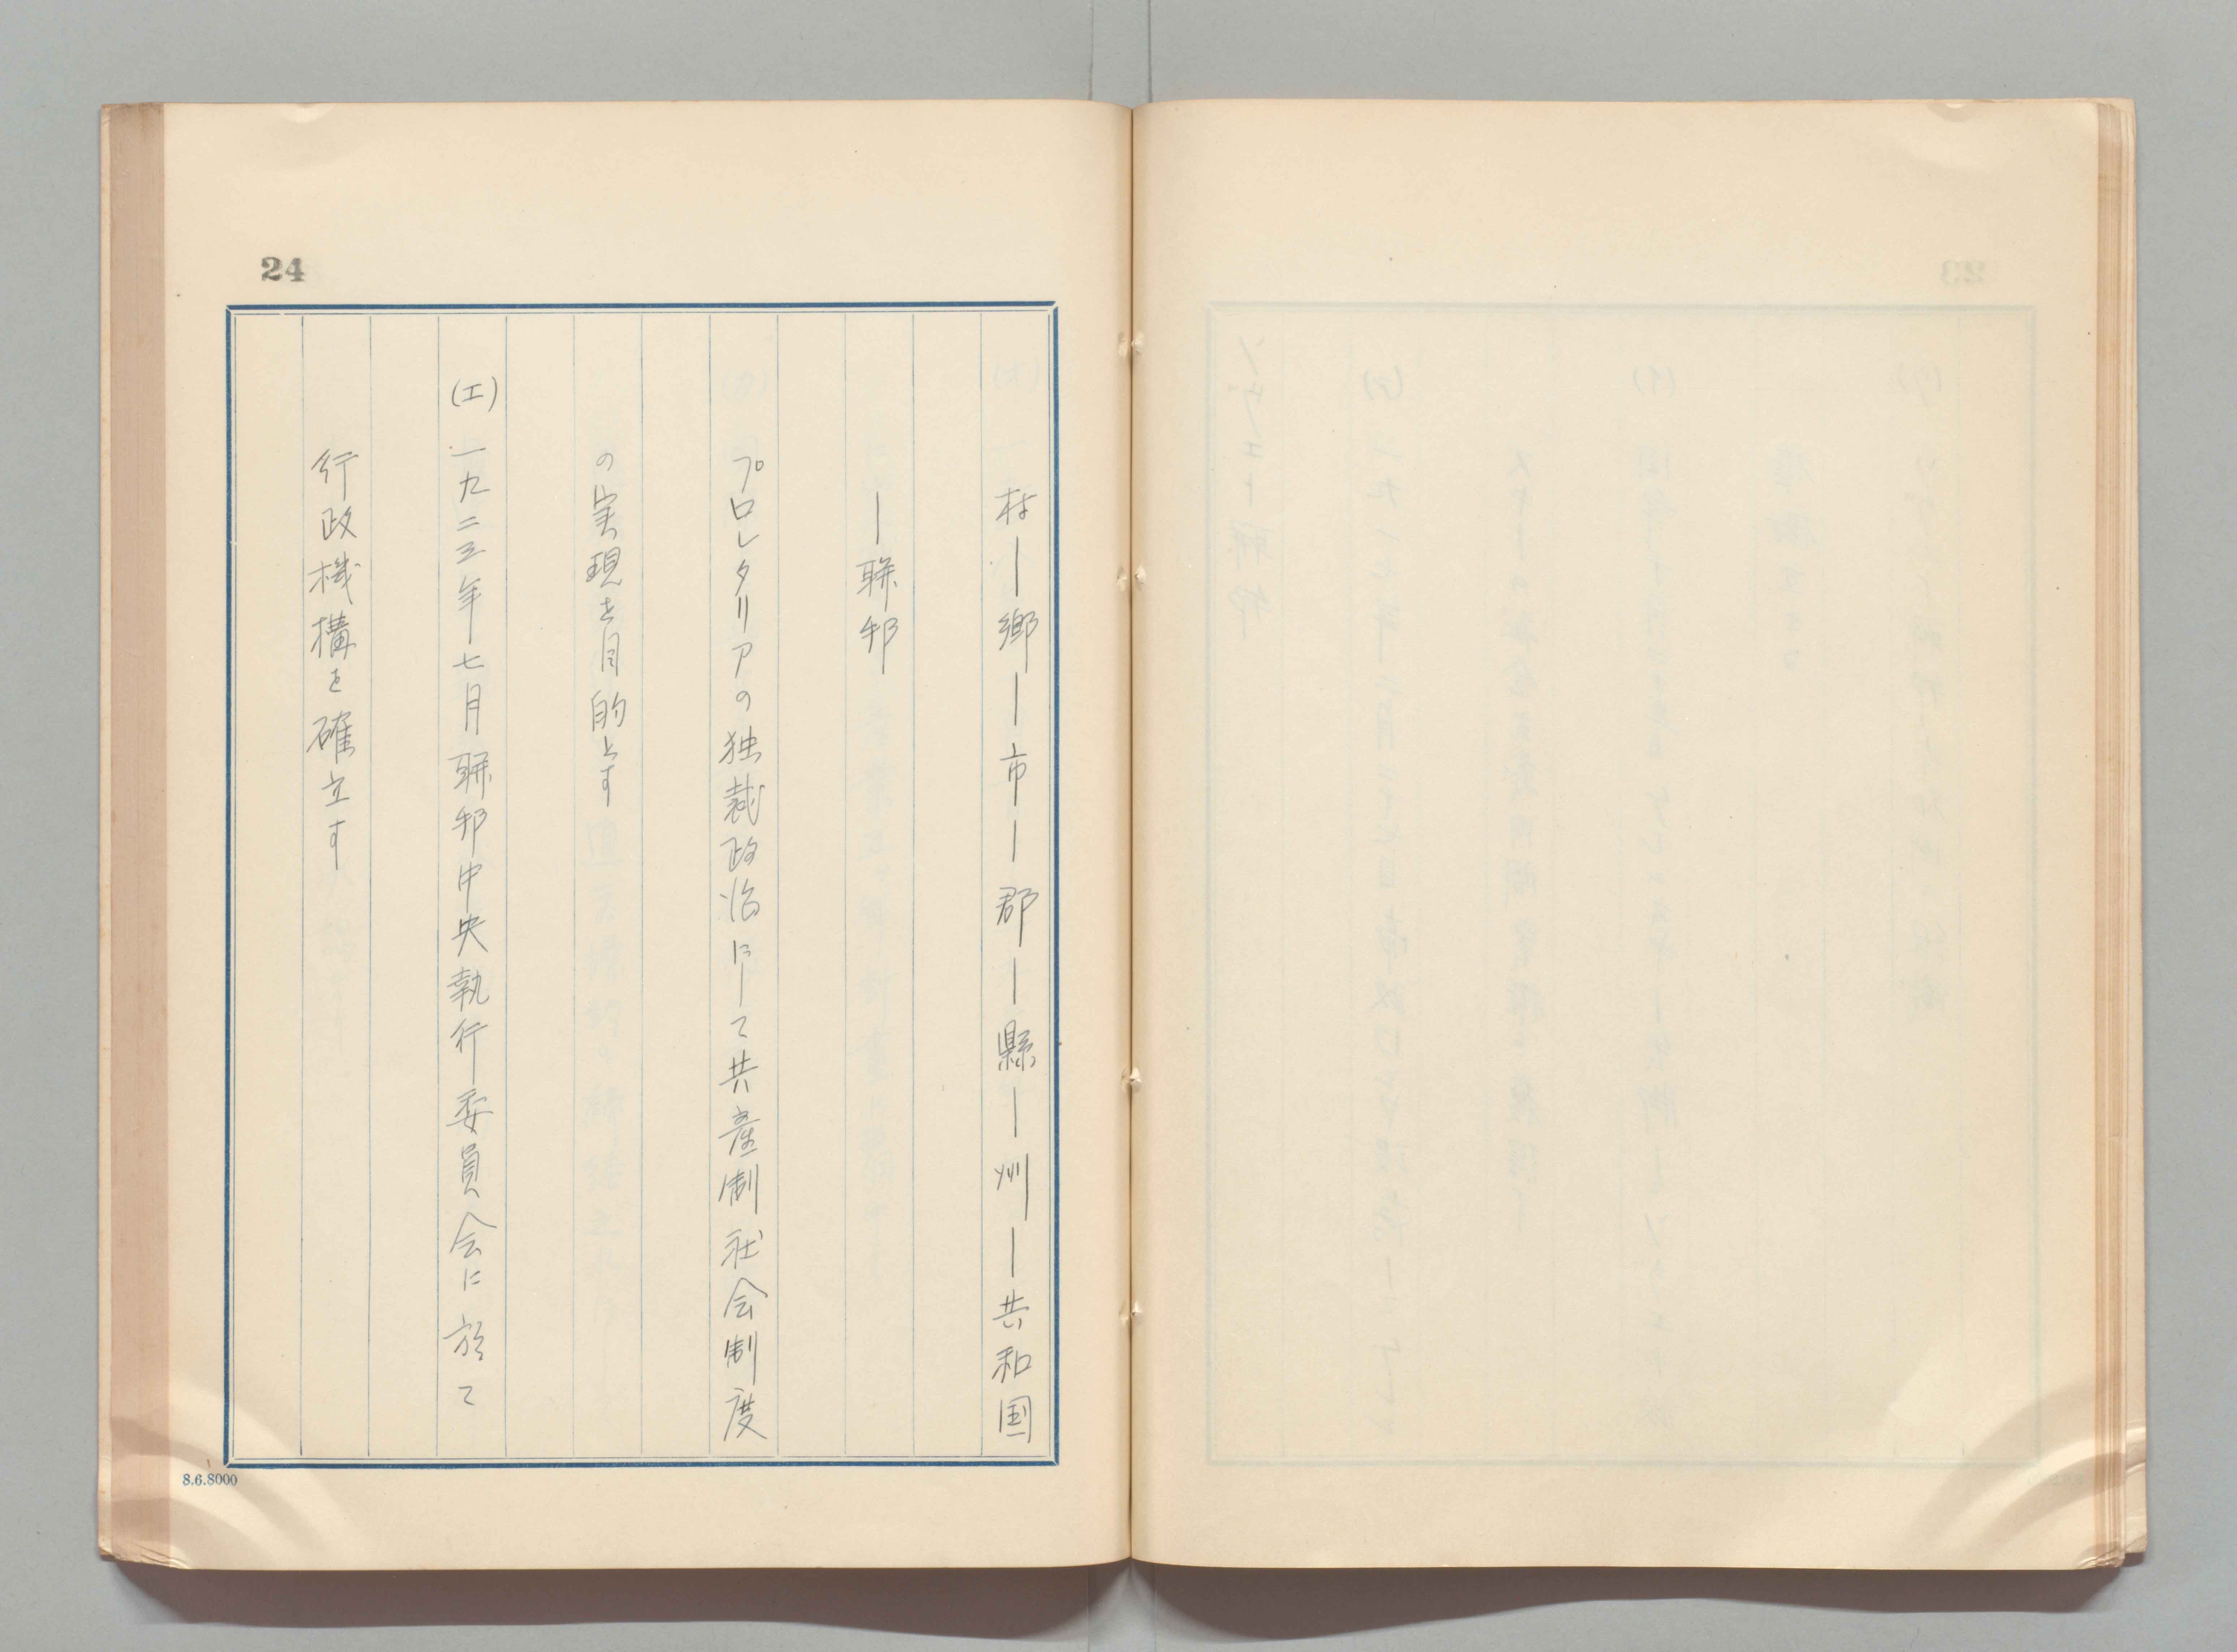 24
村―鄉―市―郡―縣―州―共和国
―聯邦
プロレタリアの独裁政治にして共産制社会制度
の実現を目的とす
(エ) 一九二三年七月聯邦中央執行委員会に於て
行政機構を確立す
8.6.8000